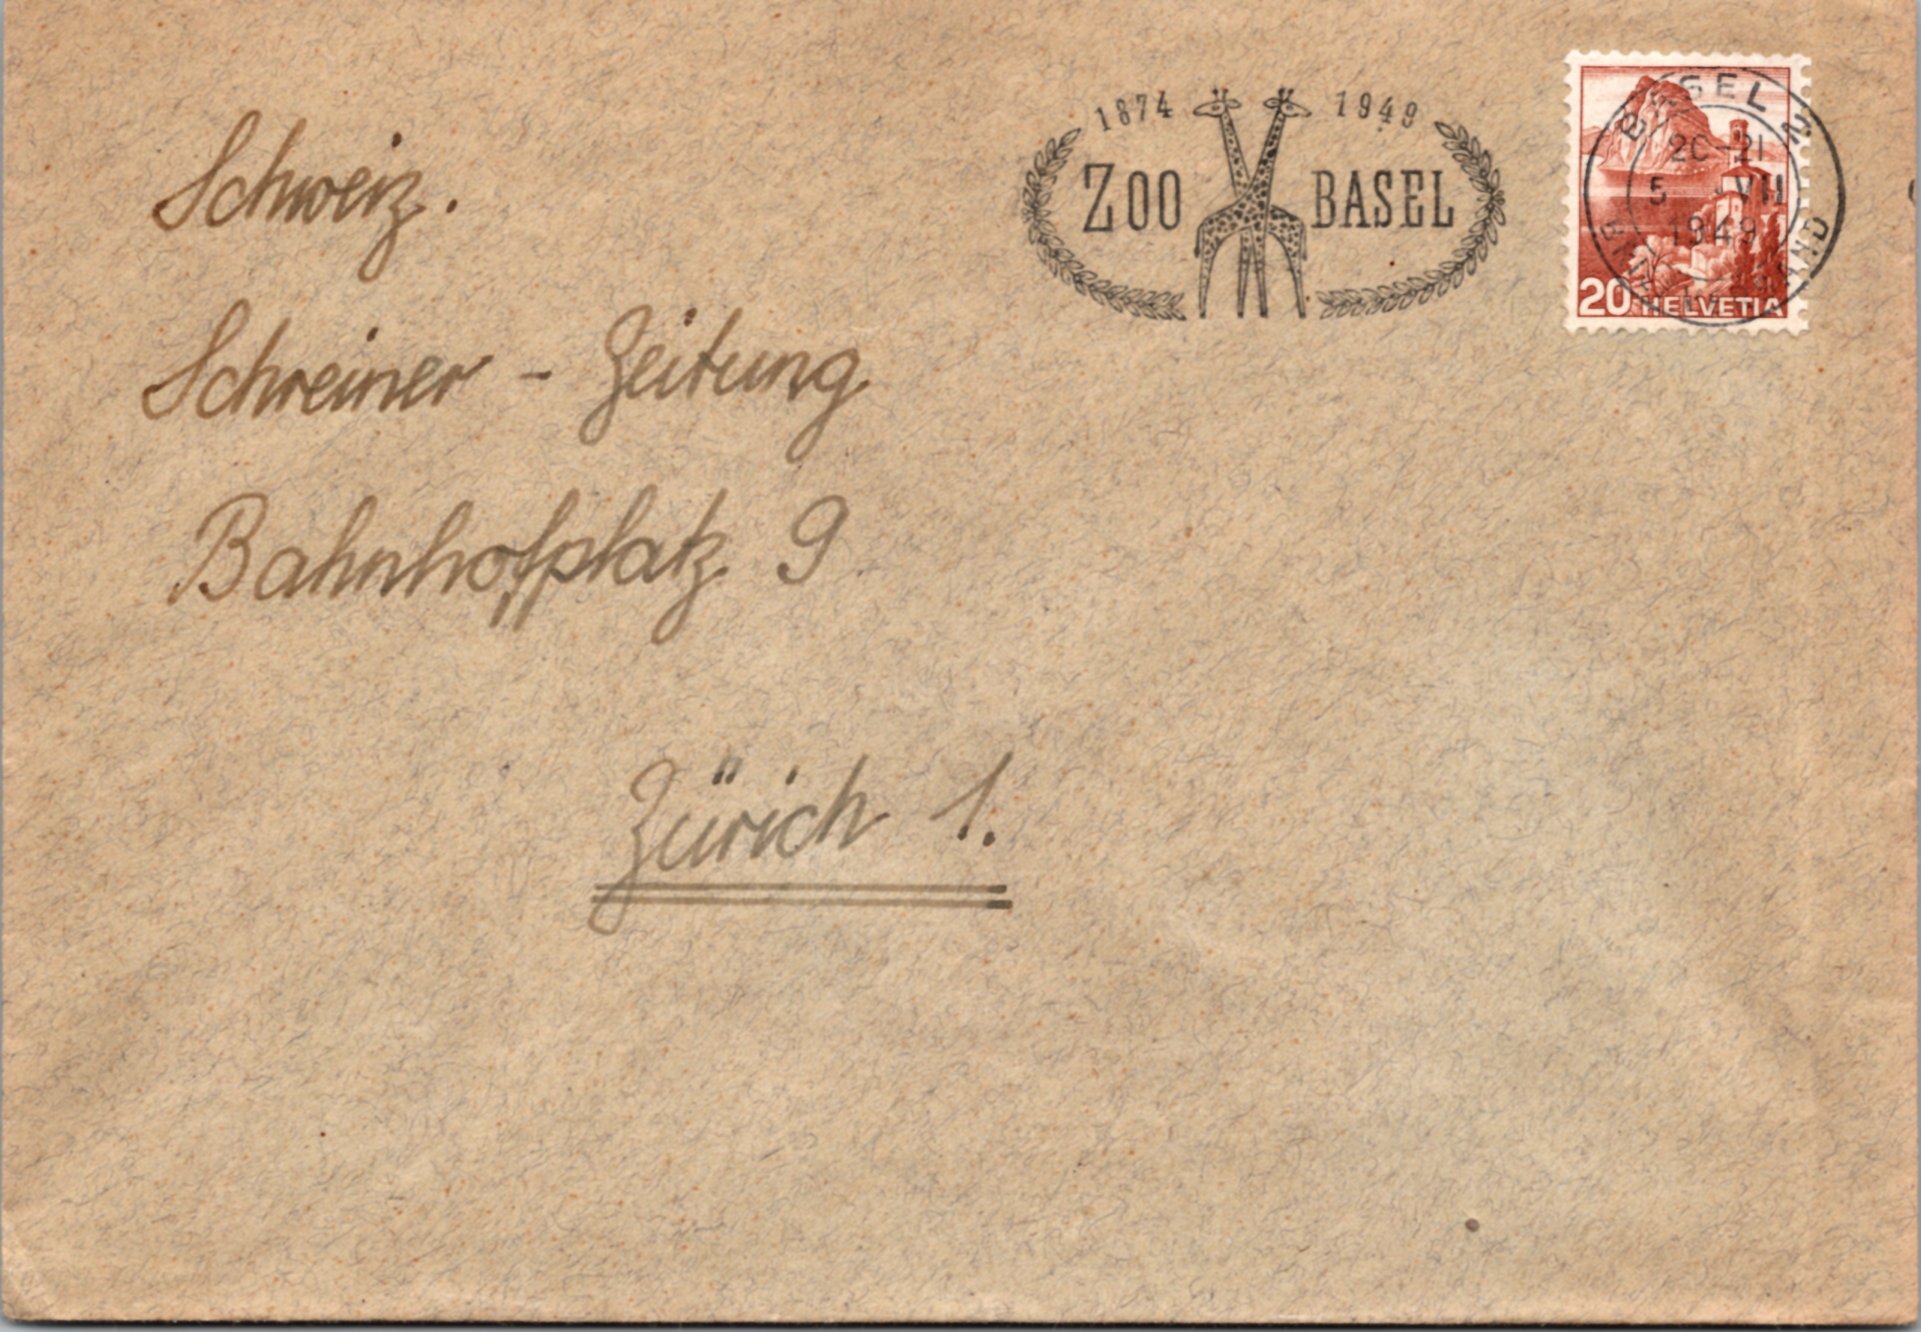 Schweiz.
Schreiner - Zeitung
Bahnhofplatz 9
Zürich 1.
1874 1949
ZOO BASEL
BASEL 2
20-21
5 VII
1949
20 HELVETIA